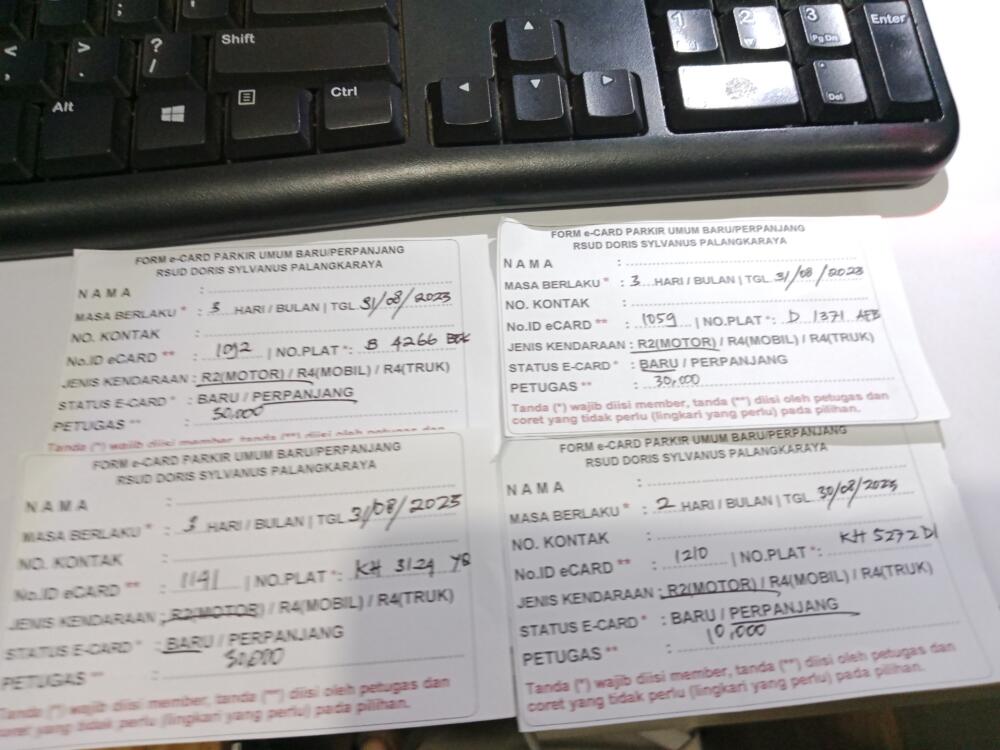 Shift
Alt
Ctrl
1
2
3
Pg Dn
Enter
Del
FORM e-CARD PARKIR UMUM BARU/PERPANJANG
RSUD DORIS SYLVANUS PALANGKARAYA
NAMA :
MASA BERLAKU * : 3 HARI / BULAN | TGL. 31/08/2023
NO. KONTAK :
No.ID eCARD ** : 1092 | NO.PLAT *: B 4266
JENIS KENDARAAN : R2(MOTOR) / R4(MOBIL) / R4(TRUK)
STATUS E-CARD * : BARU / PERPANJANG
PETUGAS ** : 30,000
Tanda (*) wajib diisi member, tanda (**) diisi oleh petugas dan
FORM e-CARD PARKIR UMUM BARU/PERPANJANG
RSUD DORIS SYLVANUS PALANGKARAYA
NAMA :
MASA BERLAKU * : 3 HARI / BULAN | TGL. 31/08/2023
NO. KONTAK :
No.ID eCARD ** : 1059 | NO.PLAT *: D 1371 AFB
JENIS KENDARAAN : R2(MOTOR) / R4(MOBIL) / R4(TRUK)
STATUS E-CARD * : BARU / PERPANJANG
PETUGAS ** : 30,000
Tanda (*) wajib diisi member, tanda (**) diisi oleh petugas dan
coret yang tidak perlu (lingkari yang perlu) pada pilihan.
FORM e-CARD PARKIR UMUM BARU/PERPANJANG
RSUD DORIS SYLVANUS PALANGKARAYA
NAMA :
MASA BERLAKU * : 3 HARI / BULAN | TGL. 31/08/2023
NO. KONTAK :
No.ID eCARD ** : 1191 | NO.PLAT *: KH 3124 YQ
JENIS KENDARAAN : R2(MOTOR) / R4(MOBIL) / R4(TRUK)
STATUS E-CARD * : BARU / PERPANJANG
PETUGAS ** : 30,000
Tanda (*) wajib diisi member, tanda (**) diisi oleh petugas dan
coret yang tidak perlu (lingkari yang perlu) pada pilihan.
FORM e-CARD PARKIR UMUM BARU/PERPANJANG
RSUD DORIS SYLVANUS PALANGKARAYA
NAMA :
MASA BERLAKU * : 2 HARI / BULAN | TGL. 30/08/2023
NO. KONTAK :
No.ID eCARD ** : 1210 | NO.PLAT *: KH 5272
JENIS KENDARAAN : R2(MOTOR) / R4(MOBIL) / R4(TRUK)
STATUS E-CARD * : BARU / PERPANJANG
PETUGAS ** : 10,000
Tanda (*) wajib diisi member, tanda (**) diisi oleh petugas dan
coret yang tidak perlu (lingkari yang perlu) pada pilihan.